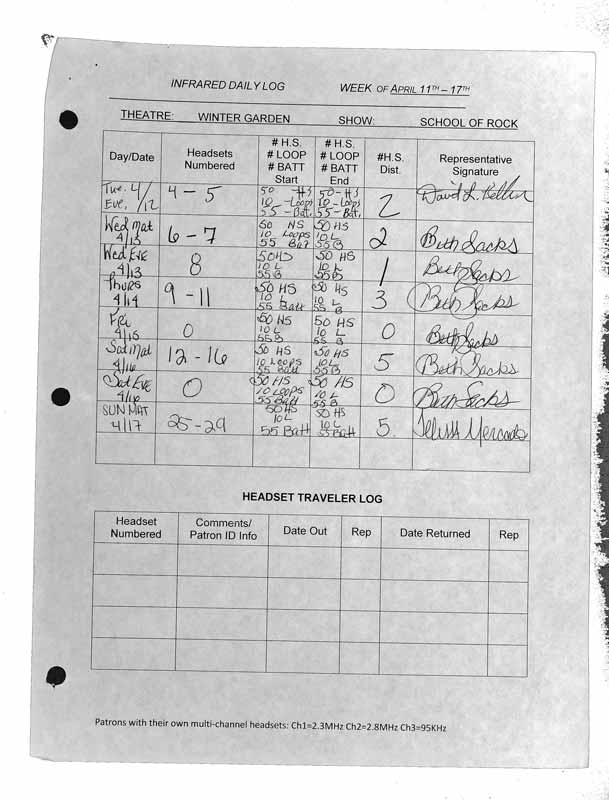 INFRARED DAILY LOG WEEK OF APRIL 11TH – 17TH
THEATRE: WINTER GARDEN SHOW: SCHOOL OF ROCK
Day/Date Headsets Numbered # H.S. # LOOP # BATT Start # H.S. # LOOP # BATT End #H.S. Dist. Representative Signature
Tue. 4/12 Eve, 4 - 5 50 - HS 10 - Loops 55 - Batt. 50 - HS 10 - Loops 55 - Batt. 2 David L.
Wed Mat 4/13 6 - 7 50 HS 10 Loops 55 Bat 50 HS 10 L 55 B 2 Beth Sacks
Wed EVE 4/13 8 50 HS 10 L 55 B 50 HS 10 L 55 B 1 Beth Sacks
Thurs 4/14 9 - 11 50 HS 10 L 55 Batt 50 HS 10 L 55 B 3 Beth Sacks
Fri 4/15 0 50 HS 10 L 55 B 50 HS 10 L 55 B 0 Beth Sacks
Sat Mat 4/16 12 - 16 50 HS 10 Loops 55 Batt 50 HS 10 L 55 B 5 Beth Sacks
Sat EVE 4/16 0 50 HS 10 Loops 55 Batt 50 HS 10 L 55 B 0 Beth Sacks
SUN MAT 4/17 25 - 29 50 HS 10 L 55 Batt 50 HS 10 L 55 Batt 5.
HEADSET TRAVELER LOG
Headset Numbered Comments/ Patron ID Info Date Out Rep Date Returned Rep
Patrons with their own multi-channel headsets: Ch1=2.3MHz Ch2=2.8MHz Ch3=95KHz